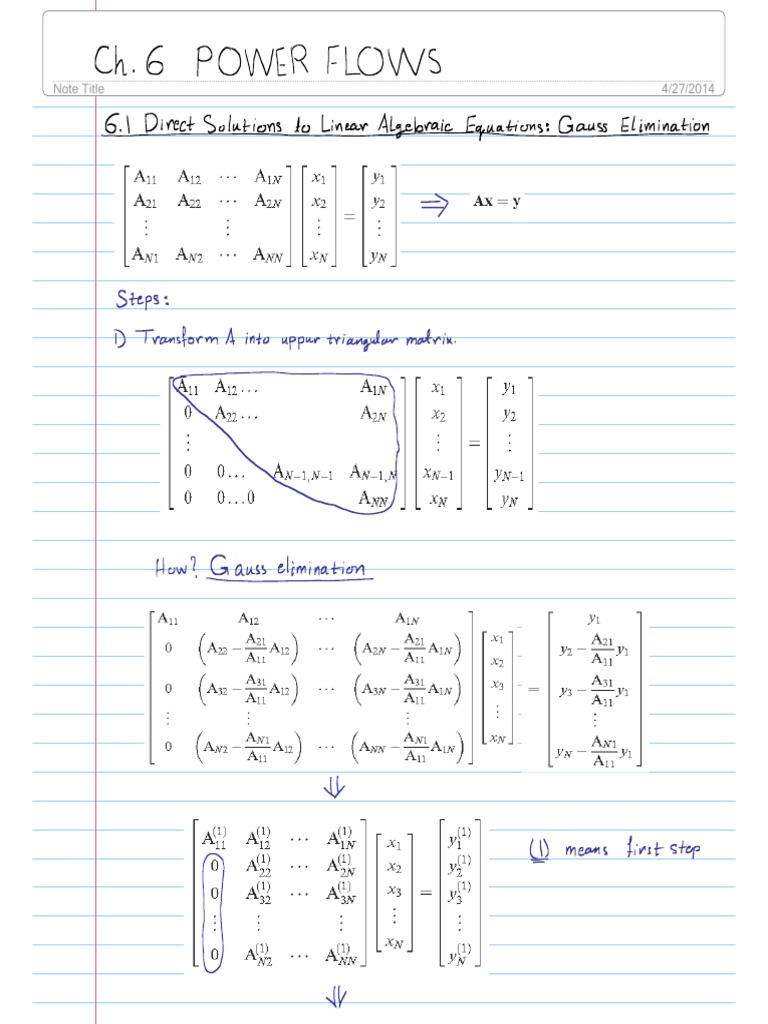 Ch. 6 POWER FLOWS
Note Title 4/27/2014
6.1 Direct Solutions to Linear Algebraic Equations: Gauss Elimination
[A₁₁ A₁₂ ⋯ A₁N; A₂₁ A₂₂ ⋯ A₂N; ⋮ ⋮ ⋮; AN₁ AN₂ ⋯ ANN] [x₁; x₂; ⋮; xN] = [y₁; y₂; ⋮; yN] ⇒ Ax = y
Steps:
1) Transform A into uppur triangular matrix.
[A₁₁ A₁₂… A₁N; 0 A₂₂… A₂N; ⋮; 0 0… AN−1,N−1 AN−1,N; 0 0…0 ANN] [x₁; x₂; ⋮; xN−1; xN] = [y₁; y₂; ⋮; yN−1; yN]
How? Gauss elimination
[A₁₁ A₁₂ ⋯ A₁N; 0 (A₂₂ − A₂₁/A₁₁ A₁₂) ⋯ (A₂N − A₂₁/A₁₁ A₁N); 0 (A₃₂ − A₃₁/A₁₁ A₁₂) ⋯ (A₃N − A₃₁/A₁₁ A₁N); ⋮ ⋮ ⋮; 0 (AN₂ − AN₁/A₁₁ A₁₂) ⋯ (ANN − AN₁/A₁₁ A₁N)] [x₁; x₂; x₃; ⋮; xN] = [y₁; y₂ − A₂₁/A₁₁ y₁; y₃ − A₃₁/A₁₁ y₁; ⋮; yN − AN₁/A₁₁ y₁]
⇓
[A₁₁⁽¹⁾ A₁₂⁽¹⁾ ⋯ A₁N⁽¹⁾; 0 A₂₂⁽¹⁾ ⋯ A₂N⁽¹⁾; 0 A₃₂⁽¹⁾ ⋯ A₃N⁽¹⁾; ⋮ ⋮ ⋮; 0 AN₂⁽¹⁾ ⋯ ANN⁽¹⁾] [x₁; x₂; x₃; ⋮; xN] = [y₁⁽¹⁾; y₂⁽¹⁾; y₃⁽¹⁾; ⋮; yN⁽¹⁾] (1) means first step
⇓